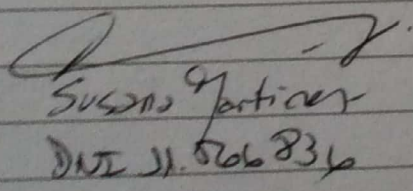 Susana Martinez
DNI 21.566836